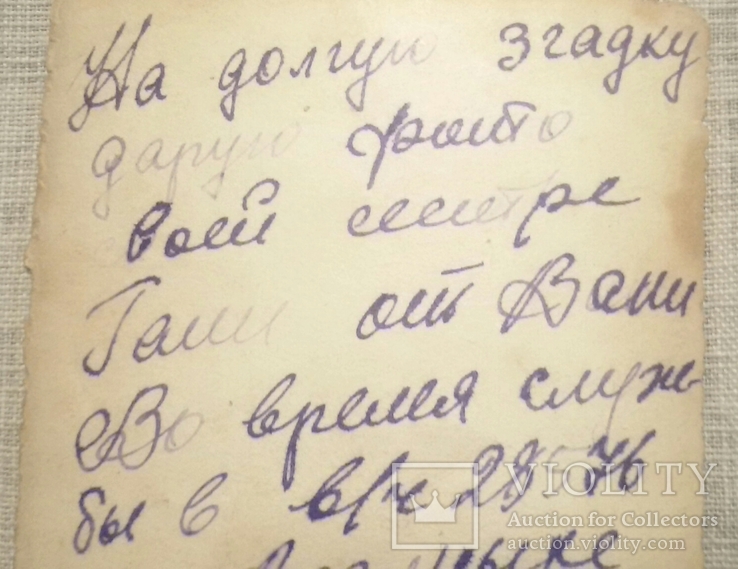 На долгую згадку
дарую фото
своей сестре
Гали от Вани
Во время служ-
бы в в/ч
VIOLITY
Auction for Collectors
auction.violity.com